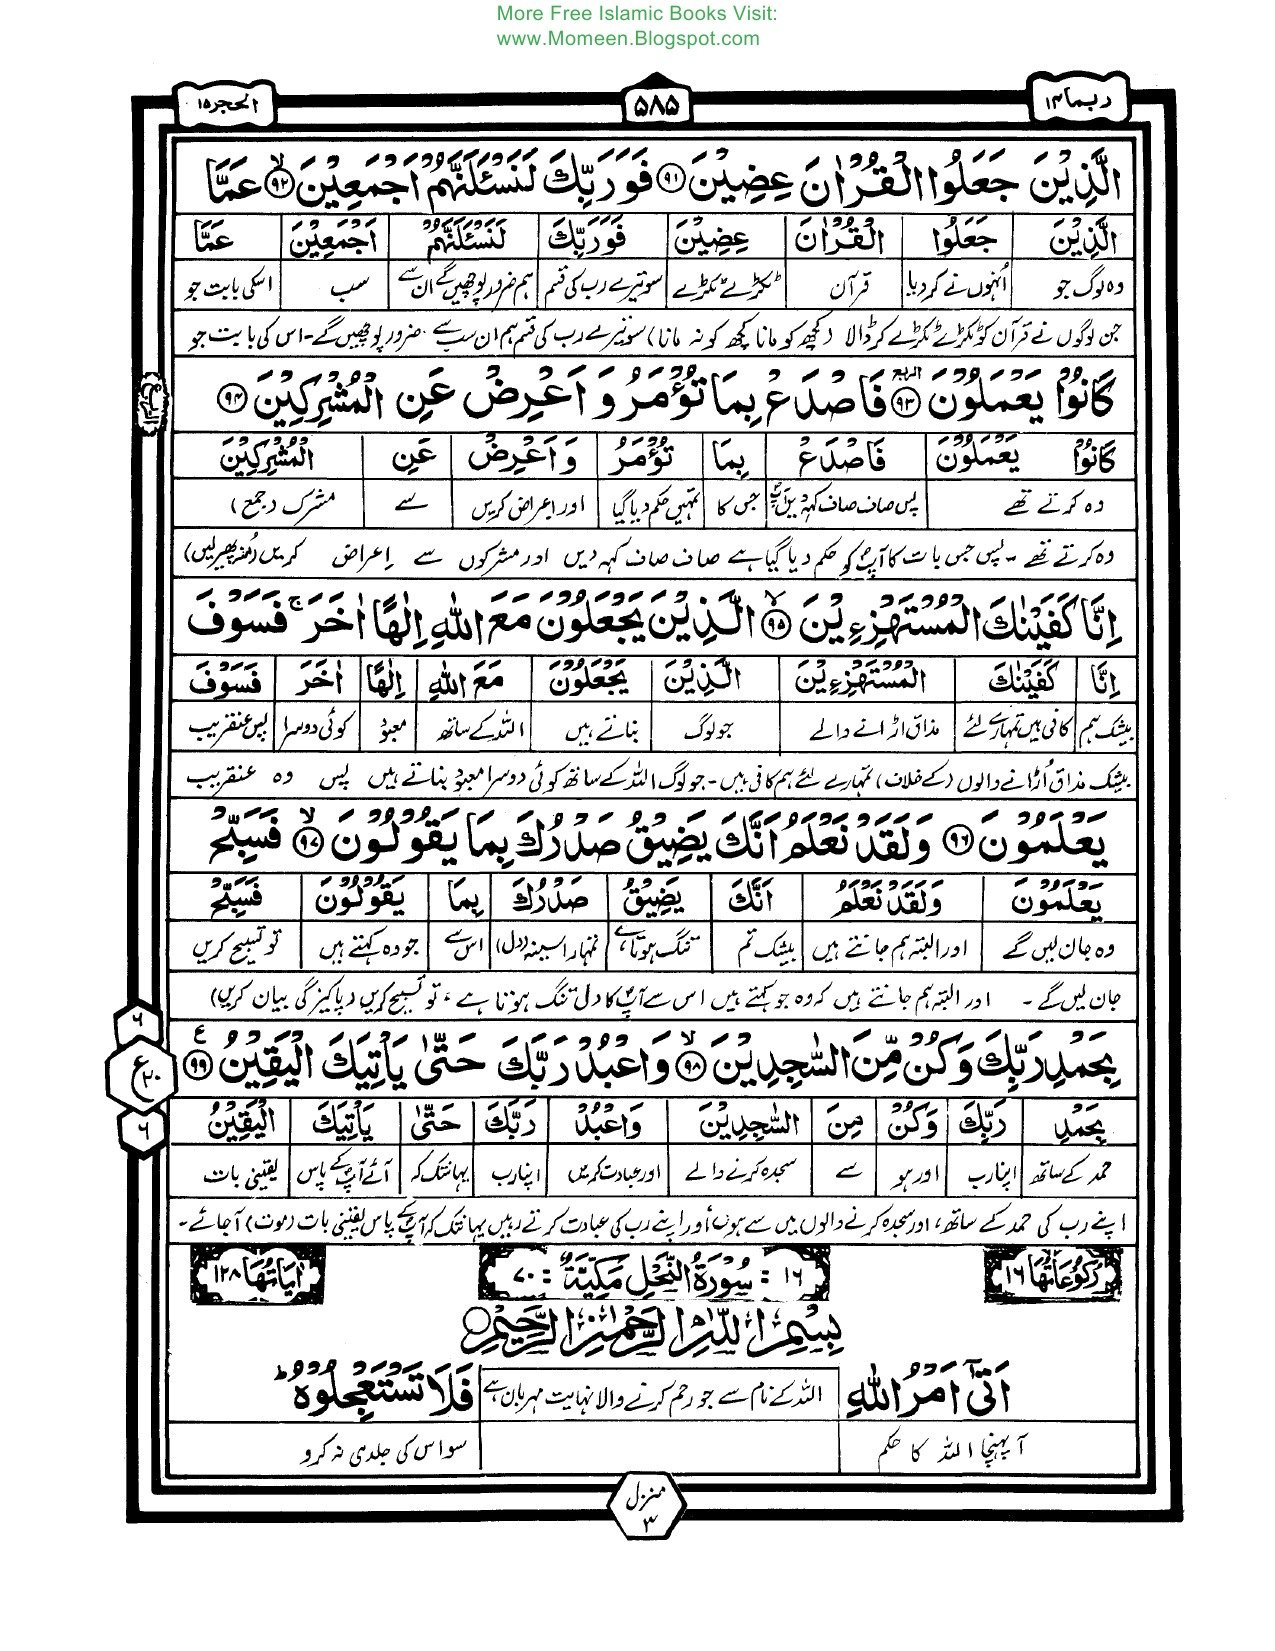 More Free Islamic Books Visit:
www.Momeen.Blogspot.com
ربما ۱۴
۵۸۵
الحجر ۱۵
الَّذِيْنَ جَعَلُوا الْقُرْاٰنَ عِضِيْنَ ۹۱ فَوَرَبِّكَ لَنَسْـَٔلَنَّهُمْ اَجْمَعِيْنَ ۙ ۹۲ عَمَّا
الَّذِيْنَ جَعَلُوا الْقُرْاٰنَ عِضِيْنَ فَوَرَبِّكَ لَنَسْـَٔلَنَّهُمْ اَجْمَعِيْنَ عَمَّا
وہ لوگ جو اُنہوں نے کردیا قرآن ٹکڑے ٹکڑے سو تیرے رب کی قسم ہم ضرور پوچھیں گے ان سے سب اسکی بابت جو
جن لوگوں نے قرآن کو ٹکڑے ٹکڑے کر ڈالا (کچھ کو مانا کچھ کو نہ مانا) سو تیرے رب کی قسم ہم ان سب سے ضرور پوچھیں گے۔ اس کی بابت جو
كَانُوْا يَعْمَلُوْنَ ۹۳ فَاصْدَعْ بِمَا تُؤْمَرُ وَاَعْرِضْ عَنِ الْمُشْرِكِيْنَ ۹۴
كَانُوْا يَعْمَلُوْنَ فَاصْدَعْ بِمَا تُؤْمَرُ وَاَعْرِضْ عَنِ الْمُشْرِكِيْنَ
وہ کرتے تھے پس صاف صاف کہہ دیں آپ جس کا تمہیں حکم دیا گیا اور اعراض کریں سے مشرک (جمع)
وہ کرتے تھے۔ پس جس بات کا آپ کو حکم دیا گیا ہے صاف صاف کہہ دیں اور مشرکوں سے اعراض کریں (منہ پھیر لیں)
اِنَّا كَفَيْنٰكَ الْمُسْتَهْزِءِيْنَ ۙ ۹۵ الَّذِيْنَ يَجْعَلُوْنَ مَعَ اللّٰهِ اِلٰهًا اٰخَرَ ۚ فَسَوْفَ
اِنَّا كَفَيْنٰكَ الْمُسْتَهْزِءِيْنَ الَّذِيْنَ يَجْعَلُوْنَ مَعَ اللّٰهِ اِلٰهًا اٰخَرَ فَسَوْفَ
بیشک ہم کافی ہیں تمہارے لئے مذاق اڑانے والے جو لوگ بناتے ہیں اللہ کے ساتھ معبود کوئی دوسرا پس عنقریب
بیشک مذاق اُڑانے والوں (کے خلاف) تمہارے لئے ہم کافی ہیں۔ جو لوگ اللہ کے ساتھ کوئی دوسرا معبود بناتے ہیں پس وہ عنقریب
يَعْلَمُوْنَ ۹۶ وَلَقَدْ نَعْلَمُ اَنَّكَ يَضِيْقُ صَدْرُكَ بِمَا يَقُوْلُوْنَ ۙ ۹۷ فَسَبِّحْ
يَعْلَمُوْنَ وَلَقَدْ نَعْلَمُ اَنَّكَ يَضِيْقُ صَدْرُكَ بِمَا يَقُوْلُوْنَ فَسَبِّحْ
وہ جان لیں گے اور البتہ ہم جانتے ہیں بیشک تم تنگ ہوتا ہے تمہارا سینہ (دل) اس سے جو وہ کہتے ہیں تو تسبیح کریں
جان لیں گے۔ اور البتہ ہم جانتے ہیں کہ وہ جو کہتے ہیں اس سے آپ کا دل تنگ ہوتا ہے، تو تسبیح کریں (پاکیزگی بیان کریں)
بِحَمْدِ رَبِّكَ وَكُنْ مِّنَ السّٰجِدِيْنَ ۙ ۹۸ وَاعْبُدْ رَبَّكَ حَتّٰى يَاْتِيَكَ الْيَقِيْنُ ع ۹۹
۶
ع ۲۰
۶
بِحَمْدِ رَبِّكَ وَكُنْ مِنَ السّٰجِدِيْنَ وَاعْبُدْ رَبَّكَ حَتّٰى يَاْتِيَكَ الْيَقِيْنُ
حمد کے ساتھ اپنا رب اور ہو سے سجدہ کرنے والے اور عبادت کریں اپنا رب یہانتک کہ آئے آپ کے پاس یقینی بات
اپنے رب کی حمد کے ساتھ، اور سجدہ کرنے والوں میں سے ہوں، اور اپنے رب کی عبادت کرتے رہیں یہانتک کہ آپ کے پاس یقینی بات (موت) آجائے۔
رُكُوْعَاتُهَا ۱۶
۱۶ : سُوْرَةُ النَّحْلِ مَكِّيَّةٌ : ۷۰
اٰيَاتُهَا ۱۲۸
بِسْمِ اللّٰهِ الرَّحْمٰنِ الرَّحِيْمِ
اَتٰٓى اَمْرُ اللّٰهِ اللہ کے نام سے جو رحم کرنے والا نہایت مہربان ہے فَلَا تَسْتَعْجِلُوْهُ ؕ
آ پہنچا اللہ کا حکم سو اس کی جلدی نہ کرو
منزل ۳